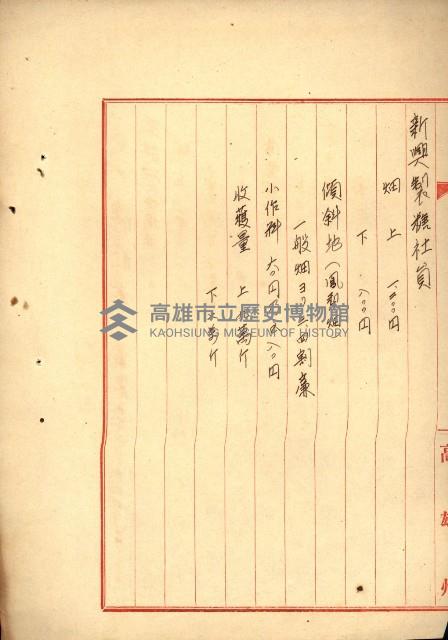 新興製糖社員
畑 上 一、二〇〇円
下 八〇〇円
傾斜地（風割畑
一般畑ヨリ三、四割廉
小作料 六〇円乃至八〇円
收穫量 上 萬斤
下 萬斤
高雄州
高雄市立歷史博物館
KAOHSIUNG MUSEUM OF HISTORY